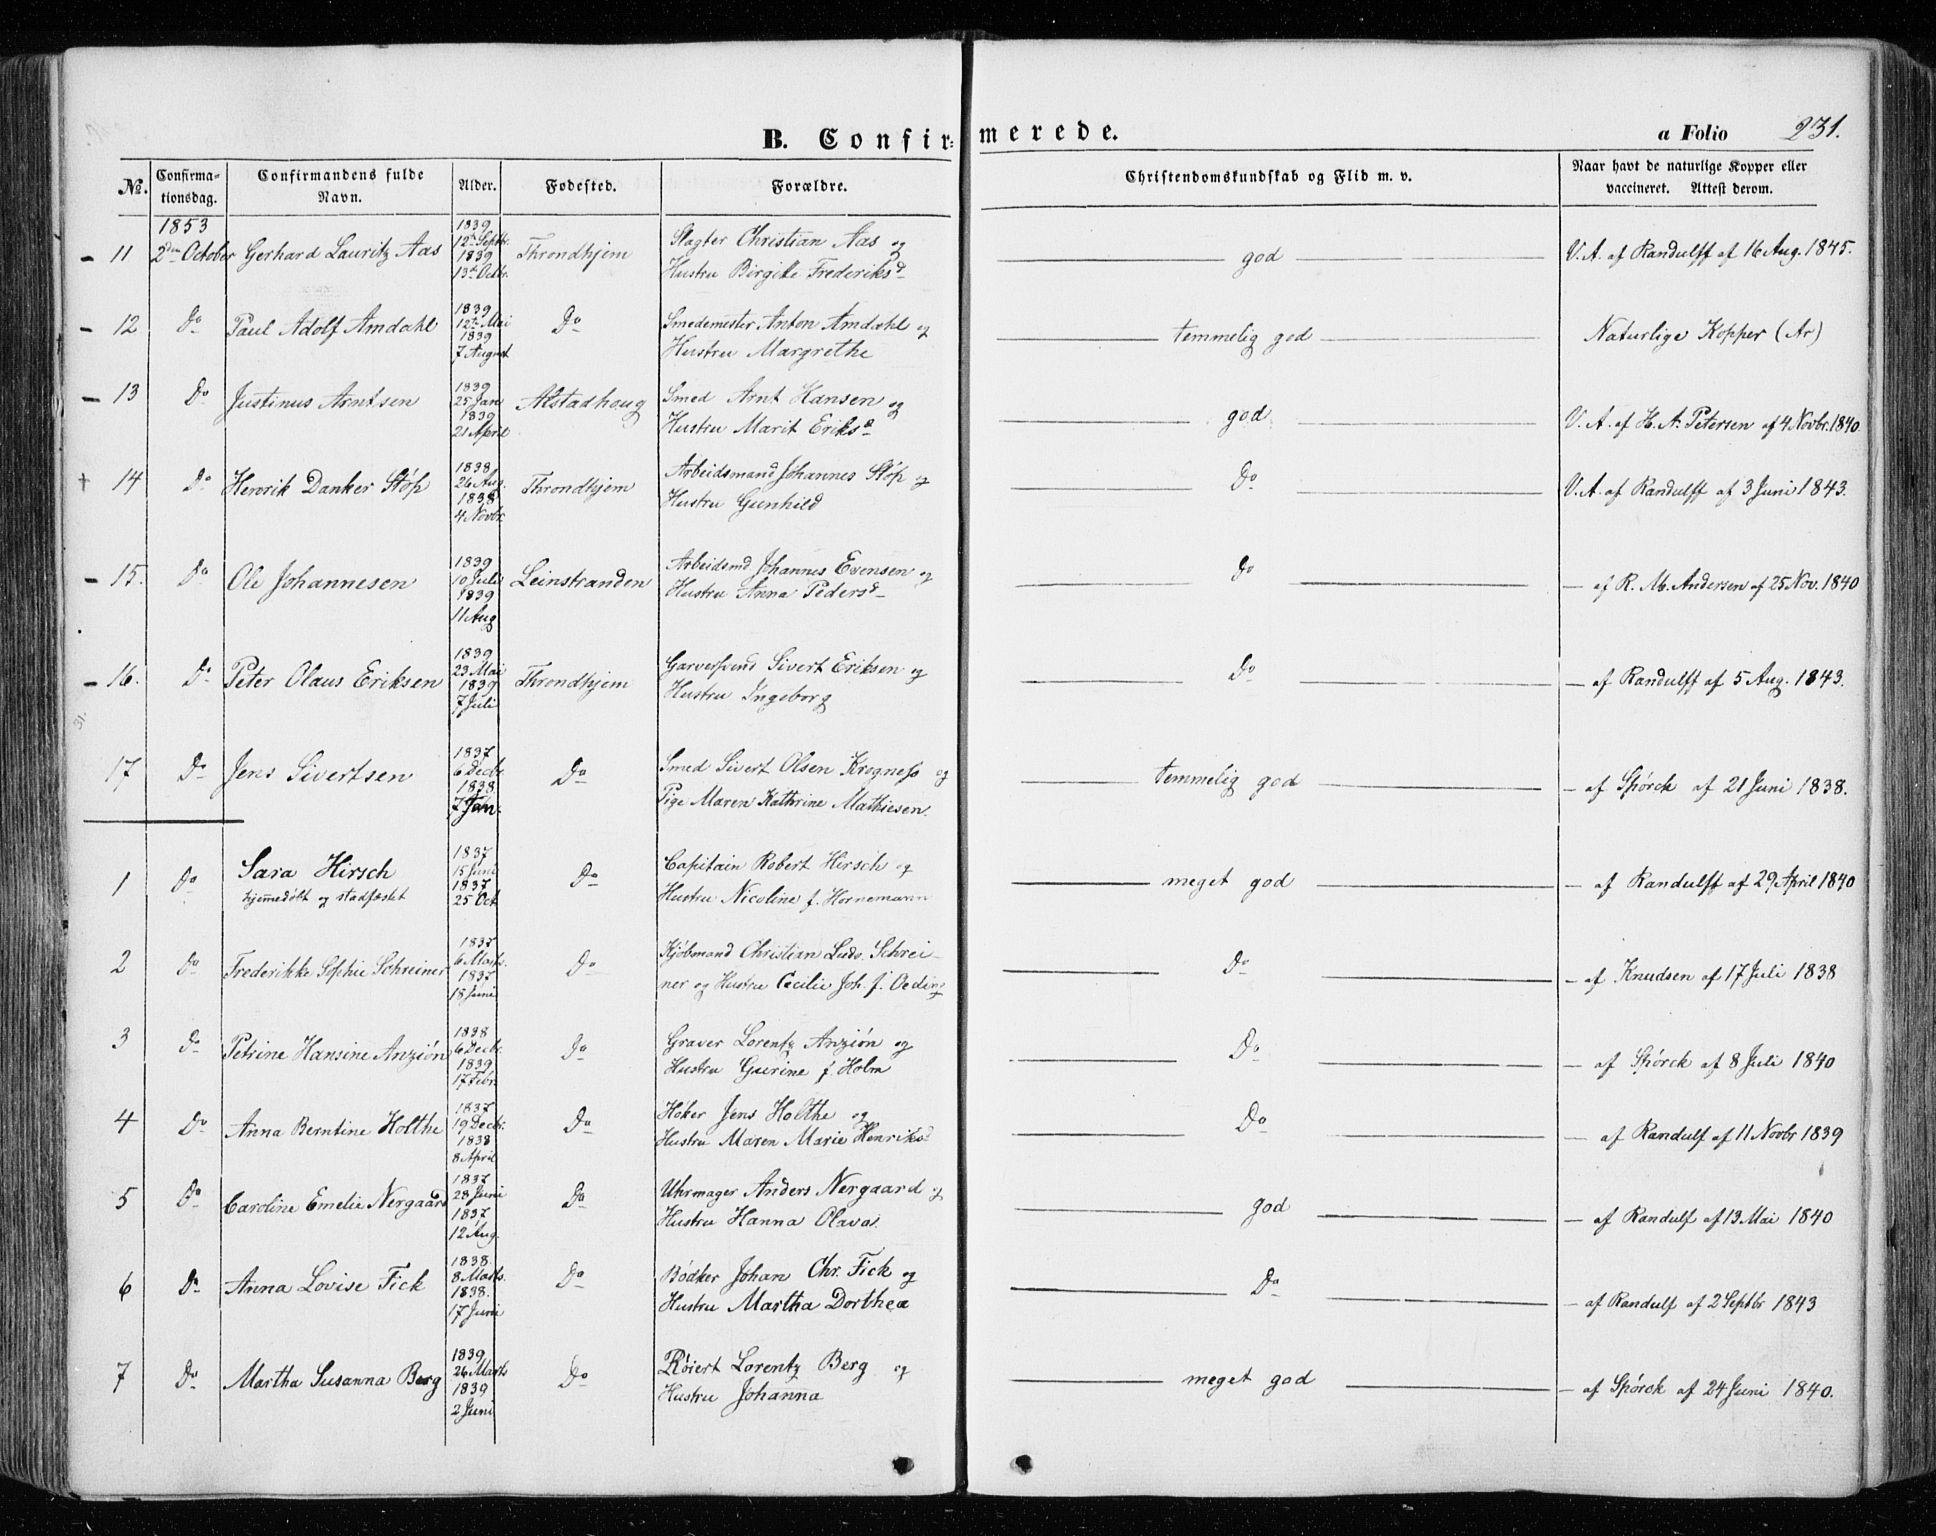 B. Confir=merede.
a Folio 231.
No. Confirma=tionsdag. Confirmandens fulde Navn. Alder. Fødested. Forældre. Christendomskundskab og Flid m. v. Naar havt de naturlige Kopper eller vaccineret. Attest derom.
1853
- 11 2den October Gerhard Lauritz Aas 1839 12te Septbr. 1839 13de Octbr. Throndhjem Slagter Christian Aas og Hustru Birgitte Frederiksd god V. A. af Randulff af 16 Aug. 1845.
- 12 Do Paul Adolf Amdahl 1839 12te Mai 1839 7 August Do Smedemester Anton Amdahl og Hustru Margrethe temmelig god Naturlige Kopper (Ar)
- 13 Do Justinus Arntsen 1839 25 Jan 1839 21 April Alstadhoug Smed Arnt Hansen og Hustru Marit Eriksd god V. A. af H. A. Petersen af 4 Novbr. 1840.
+ 14 Do Henrik Danker Støp 1838 26 Aug. 1838 4 Novbr. Throndhjem Arbeidsmand Johannes Støp og Hustru Gunhild Do V. A. af Randulff af 3 Juni 1843.
- 15. Do Ole Johannesen 1839 10 Juli 1839 11 Aug Leinstranden Arbeidsmd Johannes Evensen og Hustru Anna Pedersd Do - af R. M. Andersen af 25 Nov. 1840
- 16. Do Peter Olaus Eriksen 1839 23 Mai 1839 7 Juli Throndhjem Garversvend Sivert Eriksen og Hustru Ingeborg Do - af Randulff af 5 Aug. 1843.
31.
17 Do Jens Sivertsen 1837 6 Decbr. 1838 7 Jan. Do Smed Sivert Olsen Krogness og Pige Maren Kathrine Mathiesen. temmelig god - af Spørck af 21 Juni 1838.
1 Do Sara Hirsch hjemmedøbt og stadfæstet 1837 15 Juni 1837 25 Oct. Do Capitain Robert Hirsch og Hustru Nicoline f. Hornemann meget god - af Randulff af 29 April 1840
2 Do Frederikke Sophie Schreiner 1837 6 Marts. 1837 18 Juni Do Kjøbmand Christian Ludv. Schreiner og Hustru Cecilie Joh. f. Oeding Do - af Knudsen af 17 Juli 1838
3 Do Petrine Hansine Anziøn 1838 6 Decbr. 1839 17 Febr. Do Graver Lorentz Anziøn og Hustru Gurine f. Holm Do - af Spørck af 8 Juli 1840
4 Do Anna Berntine Holthe 1837 19 Decbr. 1838 8 April Do Høker Jens Holthe og Hustru Maren Marie Henriksd Do - af Randulf af 11 Novbr 1839
5 Do Caroline Emelie Nergaard 1837 28 Juni 1837 12 Aug. Do Uhrmager Anders Nergaard og Hustru Hanna Olava. god - af Randulf af 13 Mai 1840
6 Do Anna Lovise Fick 1838. 8 Marts. 1838. 17 Juni Do Bødker Johan Chr. Fick og Hustru Martha Dorthea Do - af Randulf af 2 Septbr 1843
7 Do Martha Susanna Berg 1839 26 Marts 1839 2 Juni Do Røiert Lorentz Berg og Hustru Johanna meget god - af Spørck af 24 Juni 1840.